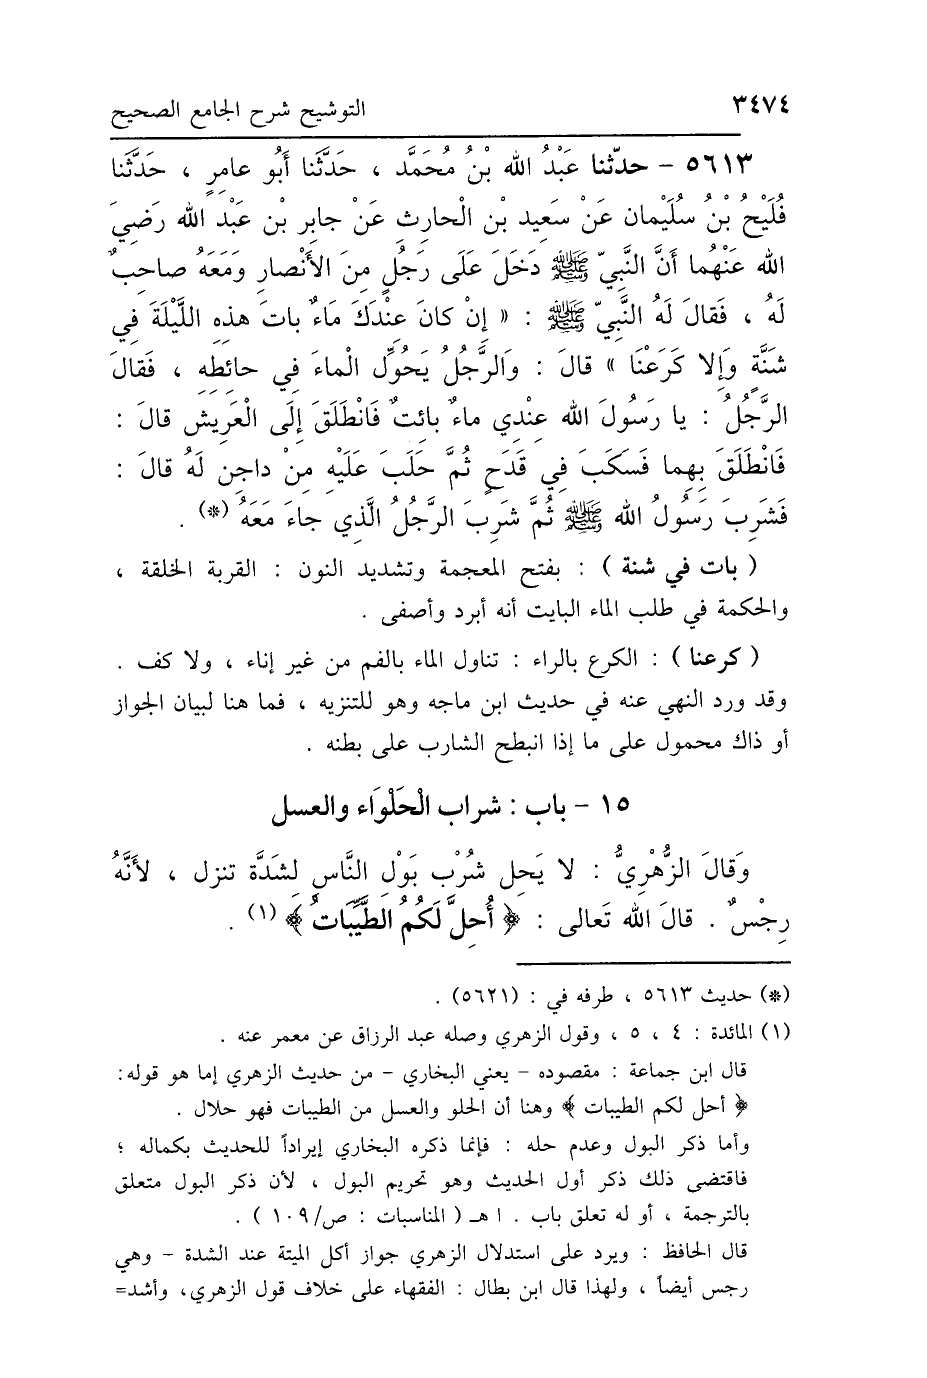 ٣٤٧٤ التوشيح شرح الجامع الصحيح
٥٦١٣ - حدّثنا عَبْدُ الله بْنُ مُحَمَّد ، حَدَّثَنا أَبُو عامِرٍ ، حَدَّثَنا
فُلَيْحُ بْنُ سُلَيْمان عَنْ سَعِيد بْنِ الْحارِثِ عَنْ جابِرِ بْنِ عَبْدِ الله رَضِيَ
الله عَنْهُما أَنَّ النَّبِيّ ﷺ دَخَلَ عَلَى رَجُلٍ مِنَ الأَنْصارِ وَمَعَهُ صاحِبٌ
لَهُ ، فَقالَ لَهُ النَّبِيّ ﷺ : « إِنْ كانَ عِنْدَكَ مَاءٌ باتَ هذِهِ اللَّيْلَةَ فِي
شَنَّةٍ وَإِلا كَرَعْنَا » قالَ : وَالرَّجُلُ يَحُوِّل الْماءَ فِي حائطِهِ ، فَقالَ
الرَّجُلُ : يا رَسُولَ الله عِنْدِي ماءٌ بائتٌ فَانْطَلَقَ إِلَى الْعَرِيشِ قالَ :
فَانْطَلَقَ بِهِما فَسَكَبَ فِي قَدَحٍ ثُمَّ حَلَبَ عَلَيْهِ مِنْ داجِنٍ لَهُ قالَ :
فَشَرِبَ رَسُولُ الله ﷺ ثُمَّ شَرِبَ الرَّجُلُ الَّذِي جاءَ مَعَهُ (*) .
( بات في شنة ) : بفتح المعجمة وتشديد النون : القربة الخلقة ،
والحكمة في طلب الماء البايت أنه أبرد وأصفى .
( كرعنا ) : الكرع بالراء : تناول الماء بالفم من غير إناء ، ولا كف .
وقد ورد النهي عنه في حديث ابن ماجه وهو للتنزيه ، فما هنا لبيان الجواز
أو ذاك محمول على ما إذا انبطح الشارب على بطنه .
١٥ - باب : شراب الْحَلْوَاء والعسل
وَقالَ الزُّهْرِيُّ : لا يَحِل شُرْب بَوْلِ النَّاسِ لشَدَّة تنزل ، لأَنَّهُ
رِجْسٌ . قالَ الله تَعالى : ﴿ أُحِلَّ لَكُمُ الطَّيِّبَاتُ ﴾ (١) .
(*) حديث ٥٦١٣ ، طرفه في : (٥٦٢١) .
(١) المائدة : ٤ ، ٥ ، وقول الزهري وصله عبد الرزاق عن معمر عنه .
قال ابن جماعة : مقصوده - يعني البخاري - من حديث الزهري إما هو قوله:
﴿ أحل لكم الطيبات ﴾ وهنا أن الحلو والعسل من الطيبات فهو حلال .
وأما ذكر البول وعدم حله : فإنما ذكره البخاري إيراداً للحديث بكماله ؛
فاقتضى ذلك ذكر أول الحديث وهو تحريم البول ، لأن ذكر البول متعلق
بالترجمة ، أو له تعلق باب . ا هـ ( المناسبات : ص/١٠٩ ) .
قال الحافظ : ويرد على استدلال الزهري جواز أكل الميتة عند الشدة - وهي
رجس أيضاً ، ولهذا قال ابن بطال : الفقهاء على خلاف قول الزهري، وأشد=